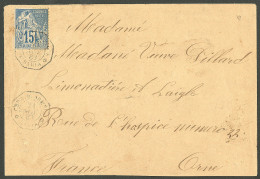 15
Madame
Madame Veuve Villard
Limonadière à Laigle
Rue de l'hospice numero
France Orne